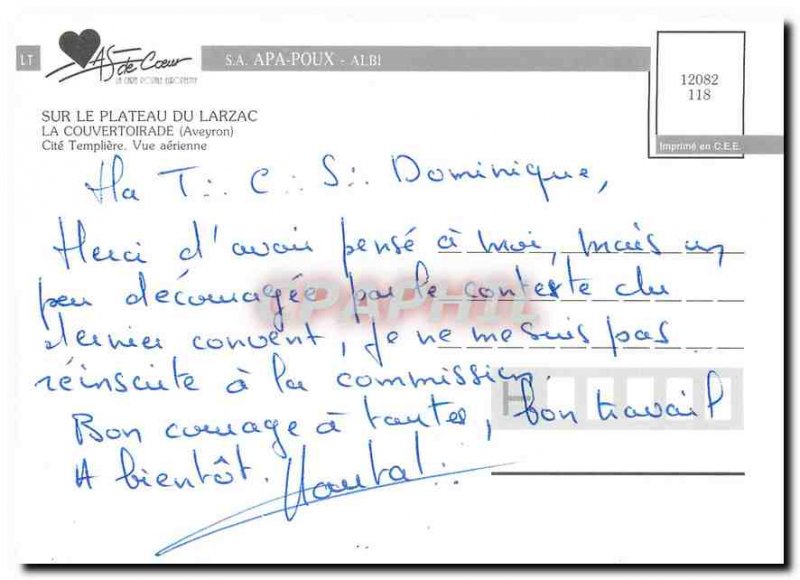 LT
AS de Cœur
LA CARTE POSTALE EUROPEENNE
S.A. APA-POUX - ALBI
12082
118
Imprimé en C.E.E.
SUR LE PLATEAU DU LARZAC
LA COUVERTOIRADE (Aveyron)
Cité Templière. Vue aérienne
Ma T∴ C∴ S∴ Dominique,
Merci d'avoir pensé à moi, mais un
peu découragée par le contexte du
dernier convent, je ne me suis pas
réinscrite à la commission.
Bon courage à toutes, bon travail
A bientôt.
CPAPHIL